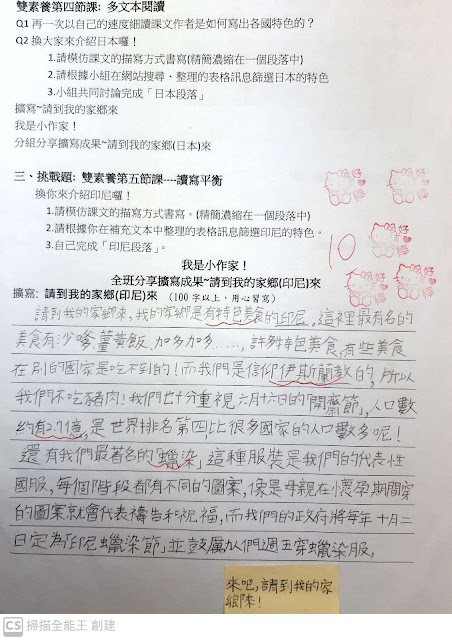 雙素養第四節課: 多文本閱讀
Q1 再一次以自己的速度細讀課文作者是如何寫出各國特色的？
Q2 換大家來介紹日本囉！
1.請模仿課文的描寫方式書寫(精簡濃縮在一個段落中)
2.請根據小組在網站搜尋、整理的表格訊息篩選日本的特色
3.小組共同討論完成「日本段落」
擴寫~請到我的家鄉來
我是小作家！
分組分享擴寫成果~請到我的家鄉(日本)來
三、挑戰題: 雙素養第五節課----讀寫平衡
換你來介紹印尼囉！
1.請模仿課文的描寫方式書寫。(精簡濃縮在一個段落中)
2.請根據你在補充文本中整理的表格訊息篩選印尼的特色。
3.自己完成「印尼段落」。
好棒
好棒
10
好棒
好棒
好棒
我是小作家！
全班分享擴寫成果~請到我的家鄉(印尼)來
擴寫: 請到我的家鄉(印尼)來 (100 字以上，用心習寫)
請到我的家鄉來，我的家鄉是有特色美食的印尼，這裡最有名的
美食有沙嗲、薑黃飯、加多加多……，許多特色美食，有些美食
在別的國家是吃不到的！而我們是信仰伊斯蘭教的，所以
我們不吃豬肉！我們也十分重視六月六日的「開齋節」，人口數
約有2.7億，是世界排名第四，比很多國家的人口數多呢！
還有我們最著名的「蠟染」，這種服裝是我們的代表性
國服，每個階段都有不同的圖案，像是母親在懷孕期間穿
的圖案就會代表禱告和祝福，而我們的政府將每年十月二
日定為「印尼蠟染節」並鼓厲人們週五穿蠟染服，
來吧，請到我的家
鄉來！
CS 掃描全能王 創建